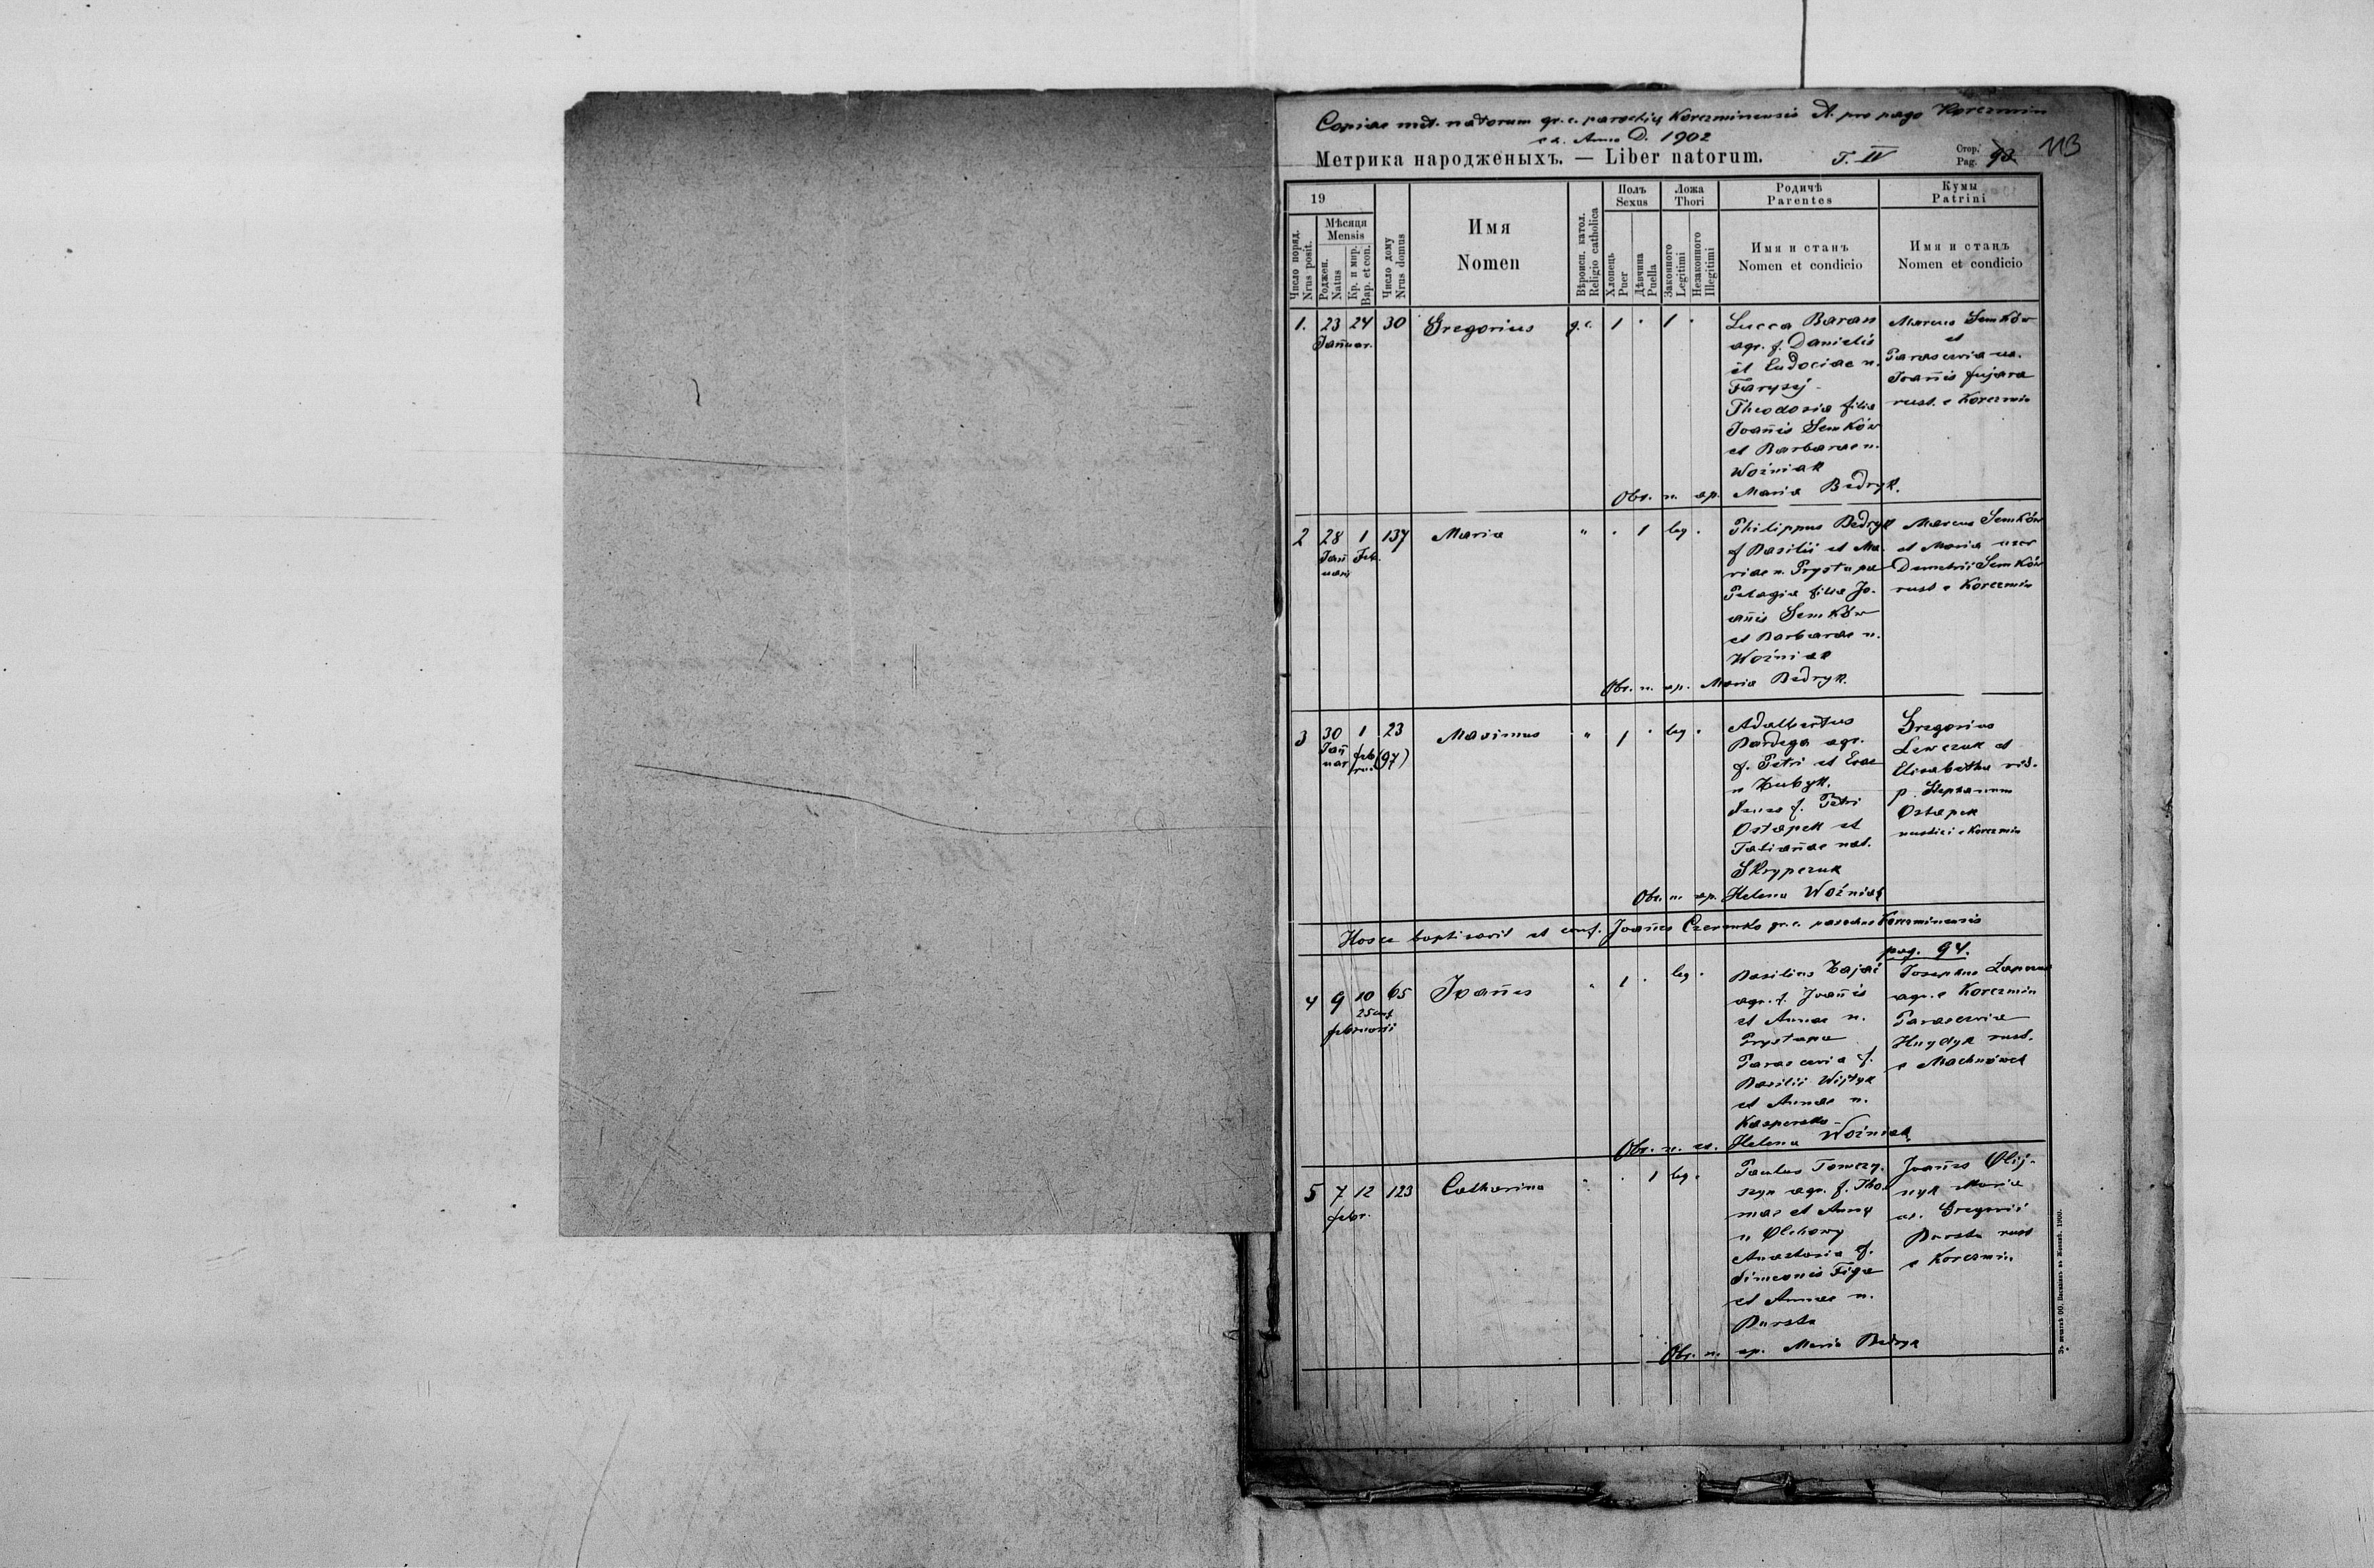 Copiae met. natorum gr. c. parochiy Korczminensis A. pro pago Korczmin
ex Anno D. 1902
Метрика народженыхъ. — Liber natorum.
T. IV
Стор.
Pag. 93 113
19
Число поряд.
Nrus posit.
Мѣсяця
Mensis
Роджен.
Natus
Кр. и мир.
Bap. et con.
Число дому
Nrus domus
Имя
Nomen
Вѣроисп. катол.
Religio catholica
Полъ
Sexus
Хлопець
Puer
Дѣвчина
Puella
Ложа
Thori
Законного
Legitimi
Незаконного
Illegitimi
Родичѣ
Parentes
Имя и станъ
Nomen et condicio
Кумы
Patrini
Имя и станъ
Nomen et condicio
1. 23 24 30 Gregorius g. c. 1 · 1 ·
Januar.
Lucca Baran
agr. f. Danielis
et Eudociae n.
Farysej
Theodosia filia
Joañis Semków
et Barbarae n.
Woźniak
Marcus Semków
et
Parascevia ux.
Joañis Fujara
rust. e Korczmin
Obs. n. ap. Maria Bedryk.
2 28 1 137 Maria " · 1 leg ·
Jañ Feb.
uarj
Philippus Bedryk
f Basilii et Ma-
riae n. Prystupa
Pelagia filia Jo-
añis Semków
et Barbarae n.
Woźniak
Marcus Semków
et Maria uxor
Demetrii Semków
rust e Korczmin
Obs. n. ap. Maria Bedryk.
3 30 1 23 Maximus " 1 · leg ·
Jañ feb (97)
uar. ru.
Adalbertus
Bardega agr.
f. Petri et Evae
n Zubyk.
Anna f. Petri
Ostapek et
Tatiañae nat.
Skrypczuk
Gregorius
Lewczuk et
Elisabetha vid.
p. Stephanum
Ostapek
rustici e Korczmin
Obs. n. ap. Helena Woźniak
Hosce baptisavit et conf. Joañes Czeronko gr. c. parochus Korczminensis
pag. 94.
4 9 10 65 Joañes " 1 · leg ·
25 conf
februarii
Basilius Zajać
agr. f. Joañis
et Annae n.
Prystupa
Parascevia f.
Basilii Wijtyk
et Annae n.
Josephus
agr. e Korczmin
Parascevia
Hnydyk rust.
e Machnówek
Obs. n. ap. Helena Woźniak
5 7 12 123 Catharina " · 1 leg ·
febr.
Paulus Tomczy-
szyn agr. f. Tho-
mae et Anny
n Olchowy
Anastasia f.
Simeonis Figa
et Annae n.
Bursta
Joañes Olij-
nyk Maria
ux. Gregorii
Bursta rust
e Korczmin
Obs. n. ap. Maria Bedryk